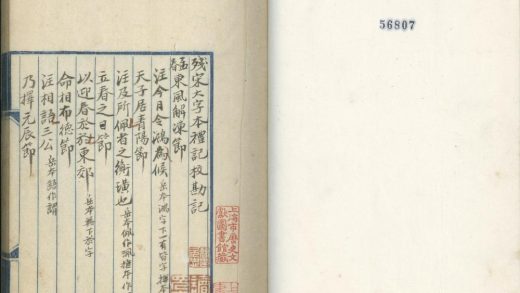 殘宋大字本禮記校勘記
孟春東風解凍節
注今月令鴻為候 岳本鴻字下有
天子居青陽節
注及所佩者之衡璜也 岳本佩作珮
立春之日節
以迎春於東郊 岳本 下於字
命相布德節
注相謂三公 岳本 作謂
乃擇元辰節
上海市歷史文
獻圖書館藏
56807